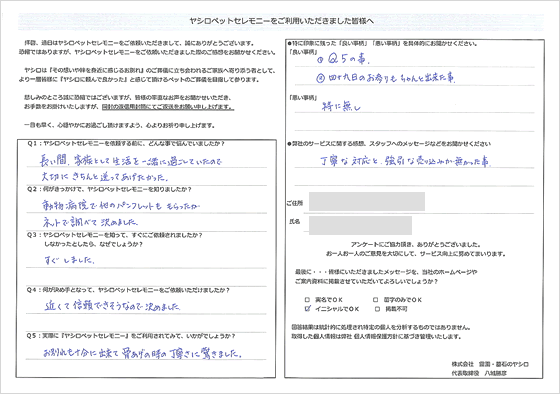 ヤシロペットセレモニーをご利用いただきました皆様へ
拝啓、過日はヤシロペットセレモニーをご依頼いただきまして、誠にありがとうございます。
恐縮ではありますが、ヤシロペットセレモニーをご依頼いただきました際のご感想をお聞かせください。
ヤシロは『その想いや絆を身近に感じるお別れ』のご葬儀に立ち会われるご家族へ寄り添う者として、
より一層皆様に『ヤシロに頼んで良かった』と感じて頂けるペットのご葬儀を目指して参ります。
悲しみのところ誠に恐縮ではございますが、皆様の率直なお声をお聞かせいただき、
お手数をお掛けいたしますが、同封の返信用封筒にてご返送をお願い申し上げます。
一日も早く、心穏やかにお過ごし頂けますよう、心よりお祈り申し上げます。
Q1：ヤシロペットセレモニーを依頼する前に、どんな事で悩んでいましたか？
長い間、家族として生活を一緒に過ごしていたので
大切にきちんと送ってあげたかった。
Q2：何がきっかけで、ヤシロペットセレモニーを知りましたか？
動物病院で他のパンフレットももらったが
ネットで調べて決めました。
Q3：ヤシロペットセレモニーを知って、すぐにご依頼されましたか？
しなかったとしたら、なぜでしょうか？
すぐしました。
Q4：何が決め手となって、ヤシロペットセレモニーをご依頼いただけましたか？
近くて信頼できそうなので決めました
Q5：実際に『ヤシロペットセレモニー』をご利用されてみて、いかがでしょうか？
お別れも十分に出来て骨あげの時の丁寧さに驚きました。
●特に印象に残った「良い事柄」「悪い事柄」を具体的にお聞かせください。
「良い事柄」
① Q5の事.
② 四十九日のお参りもちゃんと出来た事.
「悪い事柄」
特に無し
●弊社のサービスに関する感想、スタッフへのメッセージなどをお聞かせください
丁寧な対応と、強引な売り込みが無かった事.
ご住所
氏名
アンケートにご協力頂き、ありがとうございました。
お一人お一人のご意見を大切にして、サービス向上に努めてまいります。
最後に・・・皆様にいただきましたメッセージを、当社のホームページや
ご案内資料に掲載させていただいてよろしいでしょうか？
□ 実名でOK □ 苗字のみでOK
☑ イニシャルでOK □ 掲載不可
回答結果は統計的に処理され特定の個人を分析するものではありません。
取得した個人情報は弊社 個人情報保護方針に基づき管理いたします。
株式会社 霊園・墓石のヤシロ
代表取締役 八城勝彦